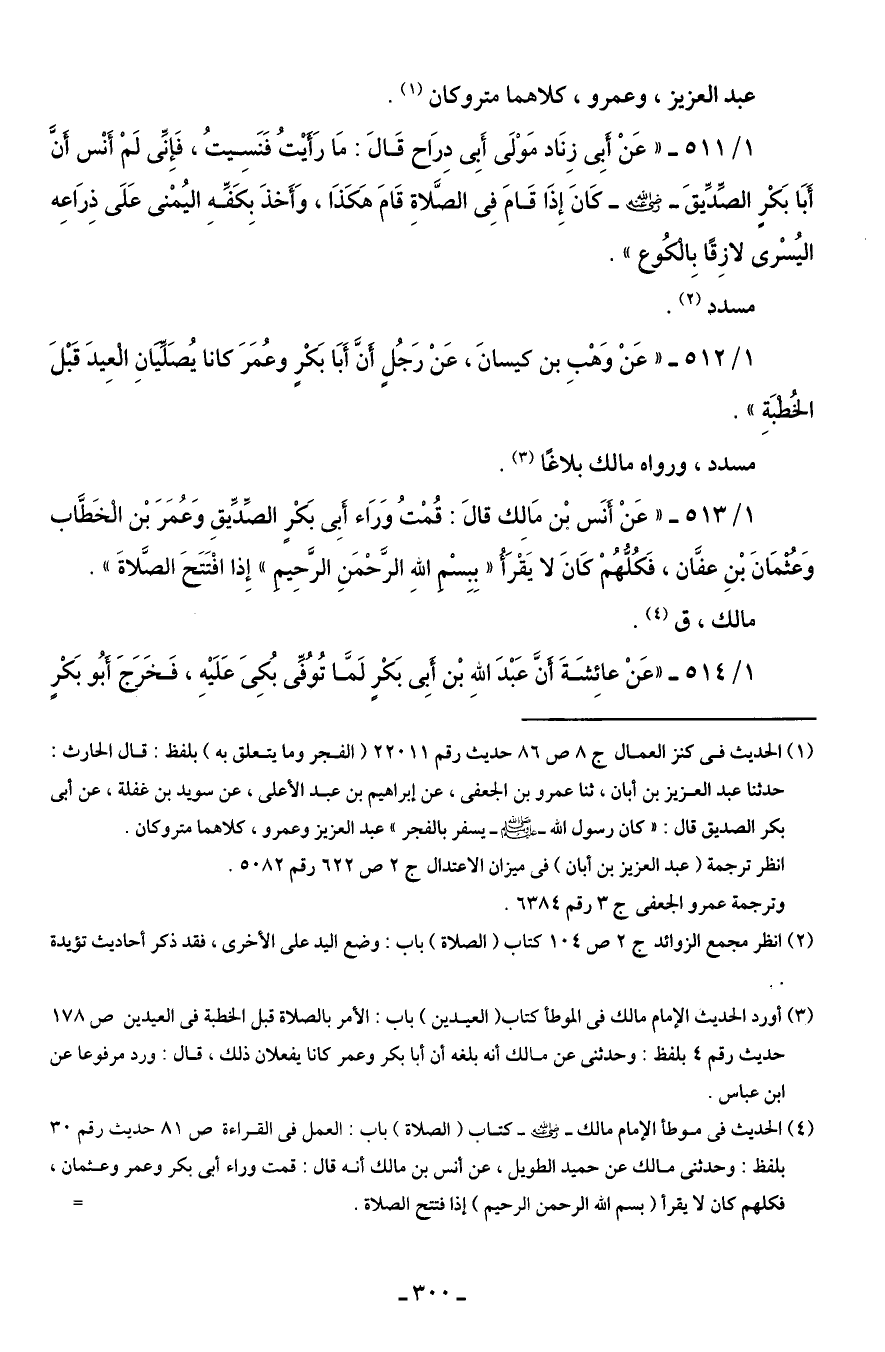 عبد العزيز ، وعمرو ، كلاهما متروكان (١) .
١/ ٥١١ ـ « عَنْ أَبِى زِنَاد مَوْلَى أَبِى دِرَاحٍ قَالَ : مَا رَأَيْتُ فَنَسِيتُ ، فَإِنِّى لَمْ أَنْس أَنَّ
أَبَا بَكْرٍ الصِّدِّيقَ ـ رضي الله عنه ـ كَانَ إِذَا قَامَ فِى الصَّلَاةِ قَامَ هَكَذَا ، وَأَخذَ بِكَفِّهِ اليُمْنى عَلَى ذِرَاعه
اليُسْرى لازِقًا بِالْكُوع » .
مسدد (٢) .
١/ ٥١٢ ـ « عَنْ وَهْبِ بن كيسانَ ، عَنْ رَجُلٍ أَنَّ أَبَا بَكْرٍ وعُمَرَ كانا يُصَلِّيَانِ الْعِيدَ قَبْلَ
الخُطْبَةِ » .
مسدد ، ورواه مالك بلاغًا (٣) .
١/ ٥١٣ ـ « عَنْ أَنَس بْنِ مَالِك قالَ : قُمْتُ وَرَاء أَبِى بَكْرٍ الصِّدِّيقِ وَعُمَرَ بْنِ الْخَطَّاب
وَعُثْمَانَ بْنِ عفَّان ، فَكُلُّهُمْ كَانَ لا يَقْرَأُ « بِبِسْمِ اللهِ الرَّحْمَنِ الرَّحِيمِ » إِذا افْتَتَحَ الصَّلَاةَ » .
مالك ، ق (٤) .
١/ ٥١٤ ـ «عَنْ عائِشَةَ أَنَّ عَبْدَ اللهِ بْنِ أَبِى بَكْرٍ لَمَّا تُوُفِّى بُكِىَ عَلَيْهِ ، فَخَرَجَ أَبُو بَكْرٍ
(١) الحديث فى كنز العمال ج ٨ ص ٨٦ حديث رقم ٢٢٠١١ ( الفجر وما يتعلق به ) بلفظ : قال الحارث :
حدثنا عبد العزيز بن أبان ، ثنا عمرو بن الجعفى ، عن إبراهيم بن عبد الأعلى ، عن سويد بن غفلة ، عن أبى
بكر الصديق قال : « كان رسول الله ـ صلى الله عليه وسلم ـ يسفر بالفجر » عبد العزيز وعمرو ، كلاهما متروكان .
انظر ترجمة ( عبد العزيز بن أبان ) فى ميزان الاعتدال ج ٢ ص ٦٢٢ رقم ٥٠٨٢ .
وترجمة عمرو الجعفى ج ٣ رقم ٦٣٨٤ .
(٢) انظر مجمع الزوائد ج ٢ ص ١٠٤ كتاب ( الصلاة ) باب : وضع اليد على الأخرى ، فقد ذكر أحاديث تؤيدة
. .
(٣) أورد الحديث الإمام مالك فى الموطأ كتاب( العيدين ) باب : الأمر بالصلاة قبل الخطبة فى العيدين ص ١٧٨
حديث رقم ٤ بلفظ : وحدثنى عن مالك أنه بلغه أن أبا بكر وعمر كانا يفعلان ذلك ، قال : ورد مرفوعا عن
ابن عباس .
(٤) الحديث فى موطأ الإمام مالك ـ رضي الله عنه ـ كتاب ( الصلاة ) باب : العمل فى القراءة ص ٨١ حديث رقم ٣٠
بلفظ : وحدثنى مالك عن حميد الطويل ، عن أنس بن مالك أنه قال : قمت وراء أبى بكر وعمر وعثمان ،
فكلهم كان لا يقرأ ( بسم الله الرحمن الرحيم ) إذا فتتح الصلاة . =
ـ ٣٠٠ ـ